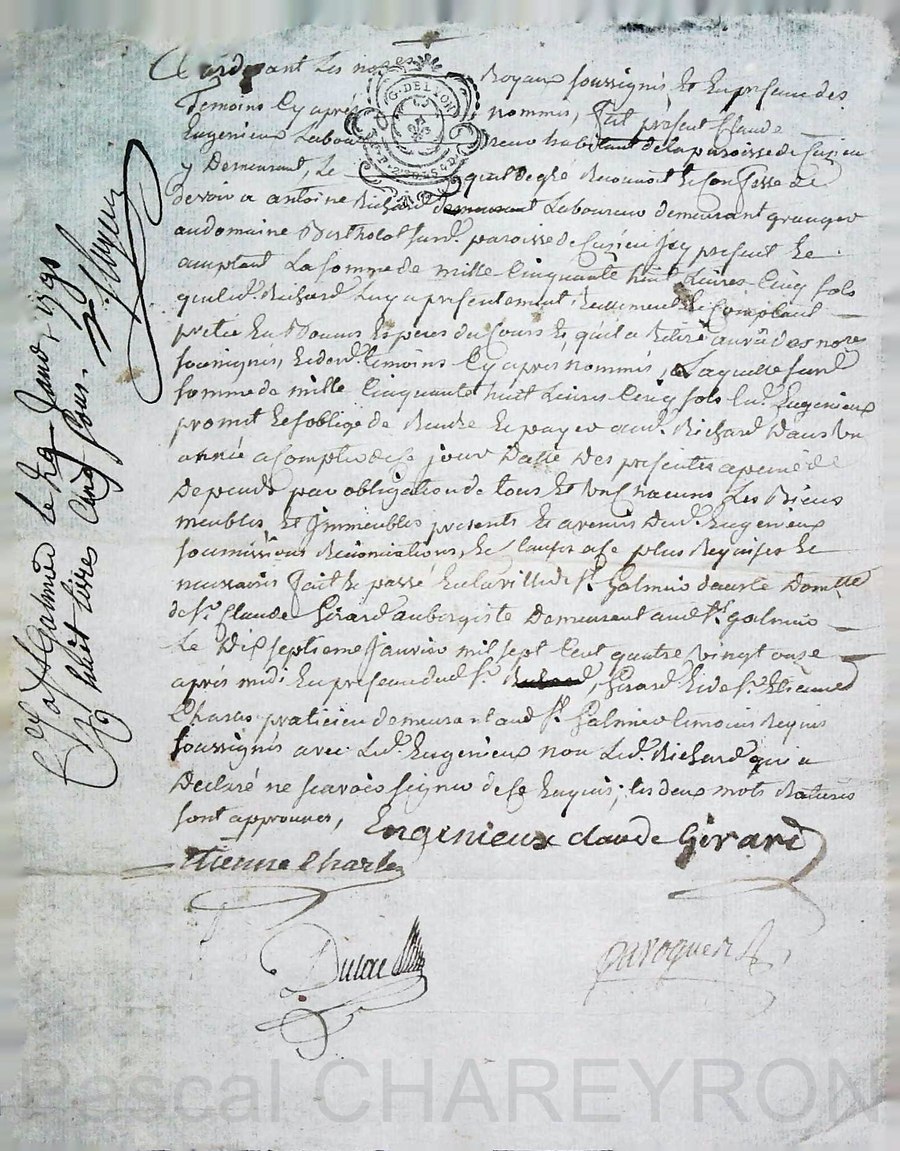 Pardevant Les nores Royaux soussignés, Et En presence des
Temoins Cy après nommés, fait present Claude
Eugenieux Laboureur habitant de la paroisse de Cuzieu
y Demeurant, Le quel de gré Reconnoit Et Confesse
devoir a antoine Richard demeurant Laboureur demeurant granger
au domaine Bertholot Surd. paroisse de Cuzieu Icy présent Et
acceptant La somme de mille Cinquante huit Livres Cinq sols
que led. Richard Luy a présentement Réellement Et Comptant
pretée En Bonnes Especes du Cours Et qu'il a Retiré au vû des nores
soussignés, Et desd. temoins Cy après nommés, Laquelle susd.
somme de mille Cinquante huit Livres Cinq sols led. Eugenieux
promet Et s'oblige de Rendre Et payer aud. Richard Dans Un
année a Compter de Ce jour Datte Des présentes a peine de
Depends par obligation de tous Et Un Chacuns Les Biens
meubles, Et Immeubles présents Et avenir Dud. Eugenieux
soumissions Renonciations, Et Clauses a Ce plus Requises Et
necessaires fait Et passé En la ville de St. Galmier
de Sr. Claude Girard aubergiste Demeurant aud. St. galmier
Le Dix septieme Janvier mil sept Cent quatre Vingt onze
après midi En présence dud. Sr. Girard Et de Sr. Etienne
Charles praticien demeurant aud. St. Galmier temoins Requis
soussignés avec Led. Eugenieux non Led. Richard qui a
Déclaré ne scavoir signer de Ce Enquis; les deux mots Raturés
sont approuvés,
Engenieux claude Girard
Etienne Charles
Dulac
G. DE LYON
Ct. a St Galmier le
huit livres Cinq sous.
Pascal CHAREYRON